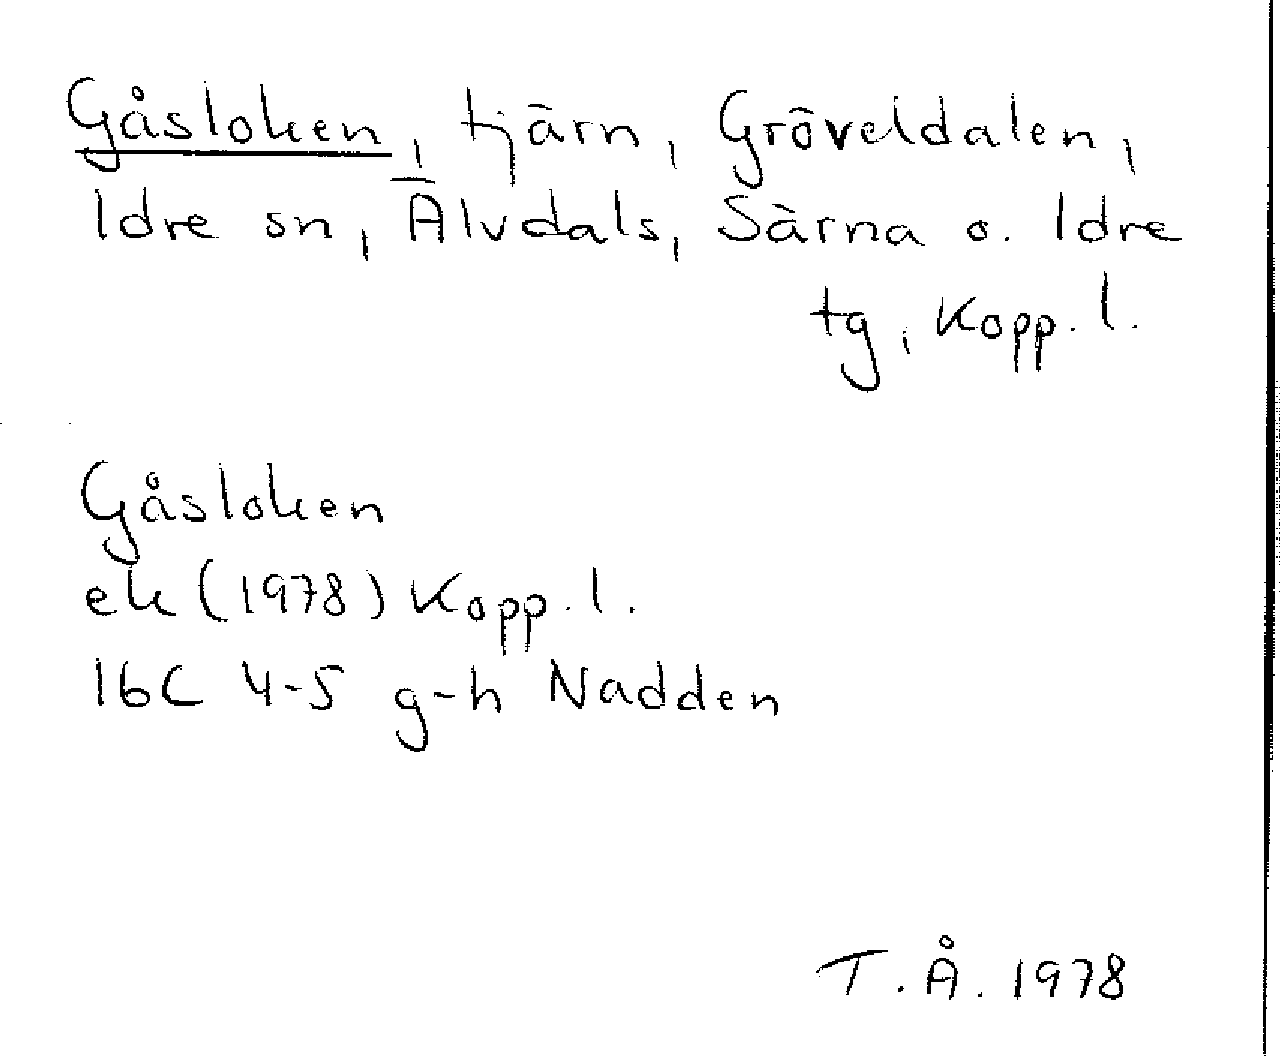 Gåsloken, tjärn, Gröveldalen,
Idre sn, Älvdals, Särna o. Idre
tg, Kopp. l.
Gåsloken
ek (1978) Kopp. l.
16C 4-5 g-h Nadden
T.Å. 1978